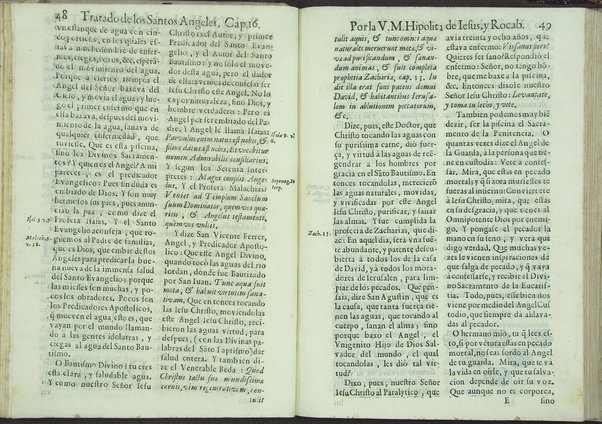 48 Tratado de los Santos Angeles, Cap. 16.
un estanque de agua con cin-
co porticos, en los quales es-
taua muchedumbre de enfer-
mos, ciegos, coxos, &c. esperā-
do el mouimiento del agua.
Porque a ciertos tiempos el
Angel del Señor baxava del
Cielo, y movia el agua y lue-
go el primer enfermo que en
ella baxaua, despues del mo-
uimiento de la agua, sanaua de
qualquier enfermedad, que
tuviesse. Que es esta piscina,
sino los Divinos Sacramen-
tos? Y quien es el Angel? A mi
parecer, es el predicador
Evangelico: Pues fue imbia-
do de Dios, Y son muy
hermosos sus pies, pues anun-
cian la paz, como dize el
Propheta Isaias. Y el Santo
Evangelio aconseja, que ro-
guemos al Padre de familias,
que es Dios, que embie deste
los Angeles para predicar la
nueva de la inmensa salud
del Santo Evangelio, porque
las miesses son muchas, y po-
cos los obradores. Pocos son
los Predicadores Apostolicos,
q̄ mueven el agua estos es, que
vayan por el mundo llaman-
do a las gentes idolatras, y
ciegas al agua del Santo Bau-
tismo.
O Bautismo Divino: tu eres
esta clara, y saludable agua.
Y como nuestro Señor Iesu
Christo es el Autor, y prince
Predicador del Santo Evan-
gelio, y el Autor del Santo
Bautismo: y no solo el move-
dor desta agua, pero el dador
de ella: avemos de confessar ser
Iesu Christo este Angel. No lo
es por naturaleza, sino Dios, y
hombre verdadero: Pero es
Angel por ser embiado del Pa-
dre, i Angel le llama Isaias:
Parvulus enim natus est nobis, &
filius datus est nobis, & vocabitur
nomen magni Consilij Angelus.
Y segun los Setenta inter-
pretes: Magni consilij Ange-
lus. Y el Propheta Malachias:
Veniet ad Templum Sanctum
suum Dominator, quem vos quæ-
ritis, & Angelus testamenti,
quem vos vultis.
Y dize San Vicente Ferrer,
Angel, y Predicador Aposto-
lico: Que este Angel Divino,
quando tocó las aguas del rio
Iordan, donde fue bautizado
por San Iuan. Tunc aqua suit
mota, & habuit virtutem sana-
tivam. Que entonces tocando
las Iesu Christo, moviendo las
este Angel Iesu Christo, reci-
bieron las aguas virtud, para
despues, (con las Divinas pa-
labras del Sāto Baptismo) dar
salud entera. Y tambien di-
ze el Venerable Beda: Quod
Christus tactu suæ mundissimæ
carnis, vim regenerativam, con-
tulit
Isai. 5. 2.
Matth. 9. v. 38.
Isaie c. 9. v. 6.
Septuag. Interp.
Por la V. M. Hipolita de Iesus, y Rocab. 49
tulit aquis, & tunc omnes aquæ
naturales meruerunt mota, & vi-
væ ad purificandum, & sanan-
dum animas, & fuit completa
prophetia Zacharia, cap. 13. In
die illa erit fons patens domui
David, & habitantibus Ierusa-
lem in ablutionem peccatorum,
&c.
Dize, pues, este Doctor, que
Christo tocando las aguas con
su purissima carne, dió fuer-
ça, y virtud a las aguas de re-
gendrar a los hombres por
gracia en el Sāto Bautismo. En
entonces tocandolas, merecierō
las aguas naturales, movidas,
y vivificadas por este Angel
Iesu Christo, purificar, y sanar
las almas. Y fue cumplida la
propheçia de Zacharias, que di-
ze: En aquel dia, sera vna fue-
te abundante, y patente descu-
bierta à todos los de la casa
de David, y à todos los mora-
dores de Ierusalen, para lim-
piar de los pecados. Que pen-
sais, dize San Agustin, que es
la causa, que tanta fuerça tie-
nen las aguas, que tocando al
cuerpo, sanan el alma; sino
porque baxo el Angel, el
Vnigenito Hijo de Dios Sal-
vador del mundo, el qual
tocandolas, les dió tal vir-
tud?
Dixo, pues, nuestro Señor
Iesu Christo al Paralytico, que
avia treinta y ocho años, que
estava enfermo: Vis sanus fieri?
Quieres ser sano? respondio el
enfermo: Señor, no tengo hom-
bre, que me baxe a la piscina,
&c. Entonces dixole nuestro
Señor Iesu Christo: Levantate,
y toma tu lecho, y vete.
Tambien podemos muy bié
dezir, ser la piscina el Sacra-
mento de la Penitencia. O
quantas vezes dize el Angel de
la Guarda, à la persona que tie-
ne en custodia: Vete à confes-
sar. Mira, que estàs en pecado
mortal, y q̄ si aora murieses te
fueras al infierno. Convierte te
à Iesu Christo; mira, que estas
en desgracia, y que tienes al
Omnipotente Dios por enemi-
go. Y pongase el pecador la
mano en su seno, y verà que
digo verdad. Que muchas ve-
zes le vienen inspiraciones de
que salga de pecado, y q̄ vaya
à confessarse, y recibir el Divi-
no Sacramento de la Eucaris-
tia. Todo, pues, este bien nos
viene por medio del Angel Cus-
todio, que siempre dà aldava-
das al pecador.
O hermano mio, tu q̄ lees es-
to, si por vetura estàs en pecado
mortal, no seas sordo al Angel
de tu guarda. Mira, que te lla-
ma à la puerta, y que tu salva-
cion depende de oir su voz.
Que aunque no es corporea,
E sino
Zach. 13.